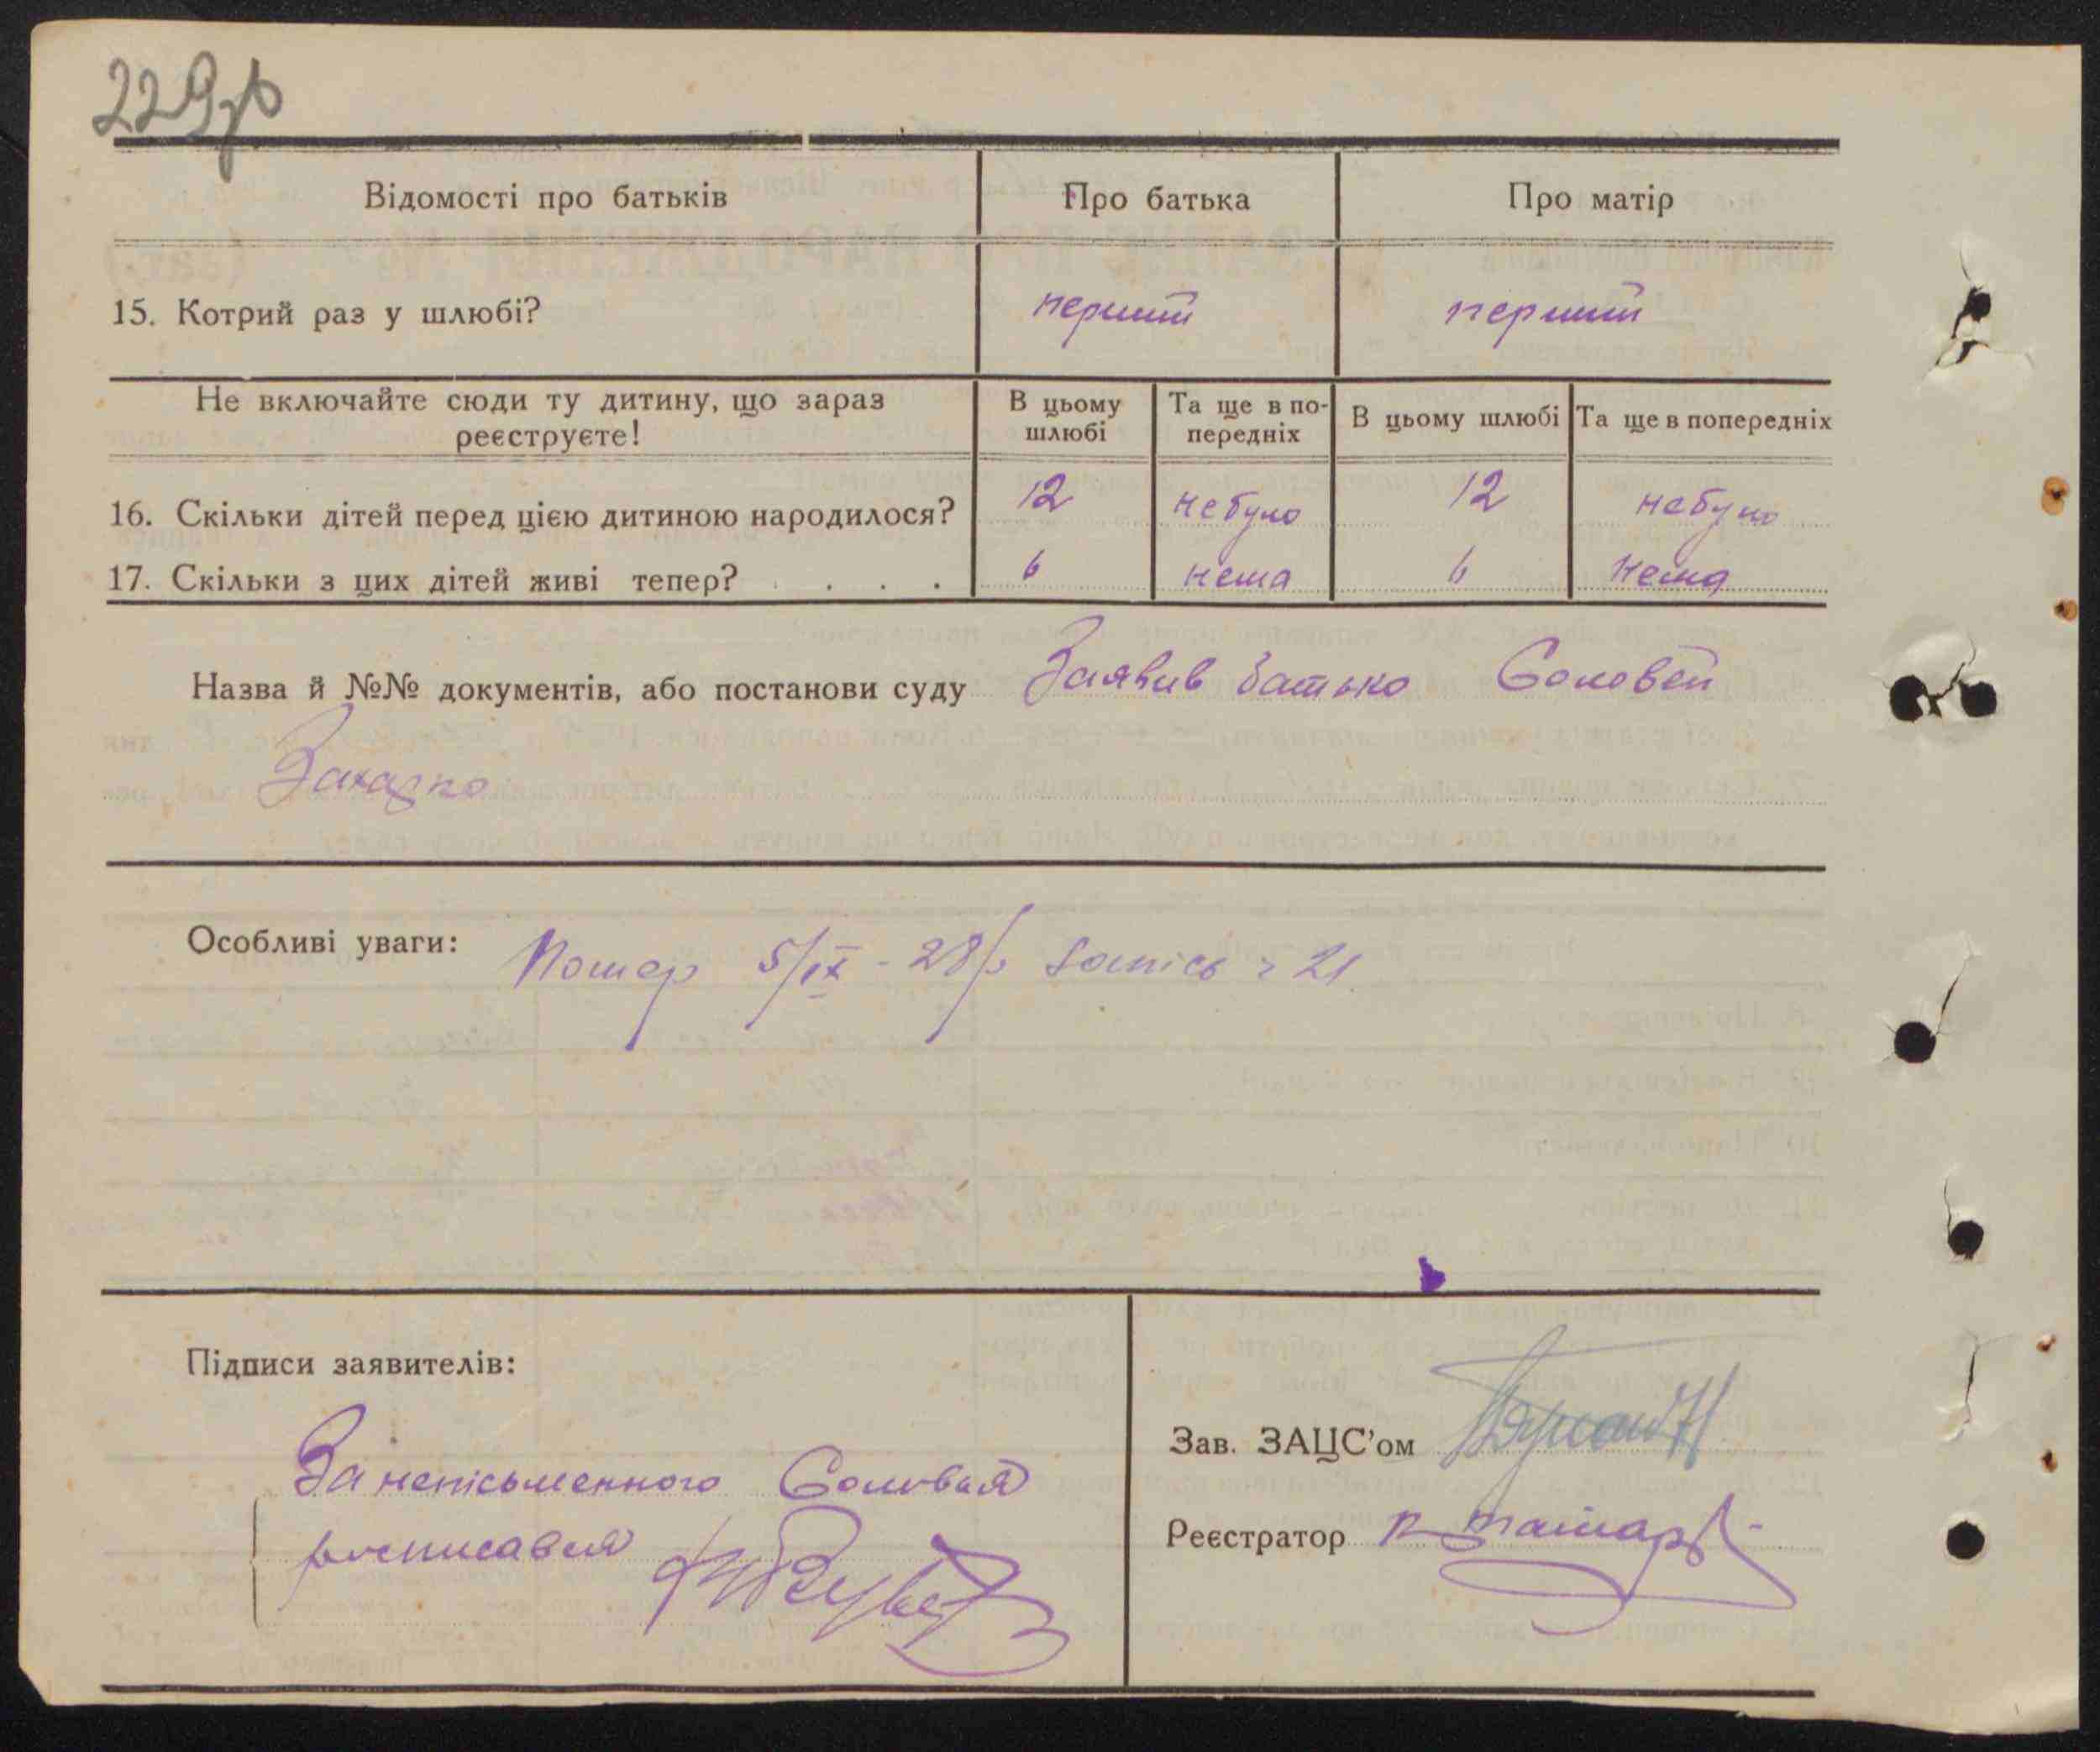 229зв
Відомості про батьків
Про батька
Про матір
15. Котрий раз у шлюбі?
перший
перший
Не включайте сюди ту дитину, що зараз
реєструєте!
В цьому
шлюбі
Та ще в по-
передніх
В цьому шлюбі
Та ще в попередніх
16. Скільки дітей перед цією дитиною народилося?
12
небуло
12
небуло
17. Скільки з цих дітей живі тепер? . . . .
6
нема
6
нема
Назва й №№ документів, або постанови суду Заявив батько Соловей
Захарко
Особливі уваги:
Помер 5/ІХ - 28р запісь 21
Підписи заявителів:
За непісьменного Соловья
росписався
Зав. ЗАЦС'ом
Реєстратор